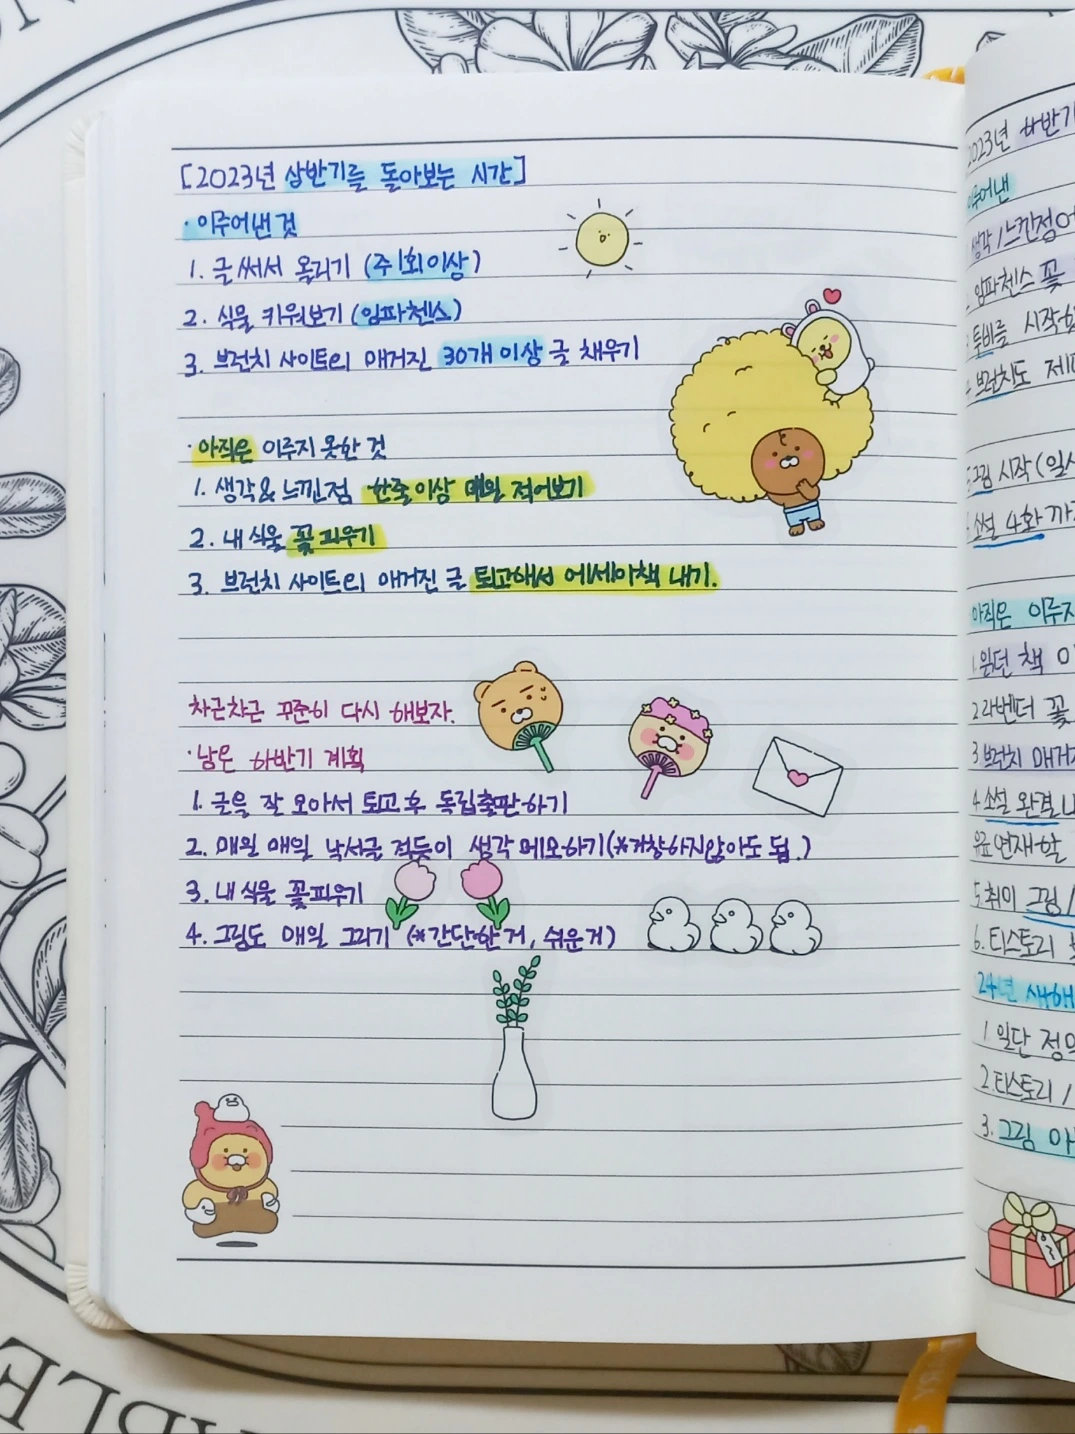 [2023년 상반기를 돌아보는 시간]
· 이루어낸 것
1. 글 써서 올리기 (주 1회 이상)
2. 식물 키워보기 (임파첸스)
3. 브런치 사이트의 매거진 30개 이상 글 채우기
· 아직은 이루지 못한 것
1. 생각 & 느낀점 한줄 이상 매일 적어보기
2. 내 식물 꽃 피우기
3. 브런치 사이트의 매거진 글 퇴고해서 에세이책 내기.
차근차근 꾸준히 다시 해보자.
· 남은 하반기 계획
1. 글을 잘 모아서 퇴고 후 독립출판 하기
2. 매일 매일 낙서글 적듯이 생각 메모하기 (*거창하지않아도 됨.)
3. 내 식물 꽃 피우기
4. 그림도 매일 그리기 (*간단한 거, 쉬운 거)
2023년 하반기
이루어낸
생각 / 느낀점
임파첸스 꽃
투비를 시작
브런치도
그림 시작 (일상
소설 4화 까지
아직은 이루지
1. 읽던 책
2. 라벤더 꽃
3. 브런치 매거진
4. 소설 완결
유료 연재 할
5. 취미 그림 /
6. 티스토리
24년 새해
1. 일단
2. 티스토리 /
3. 그림